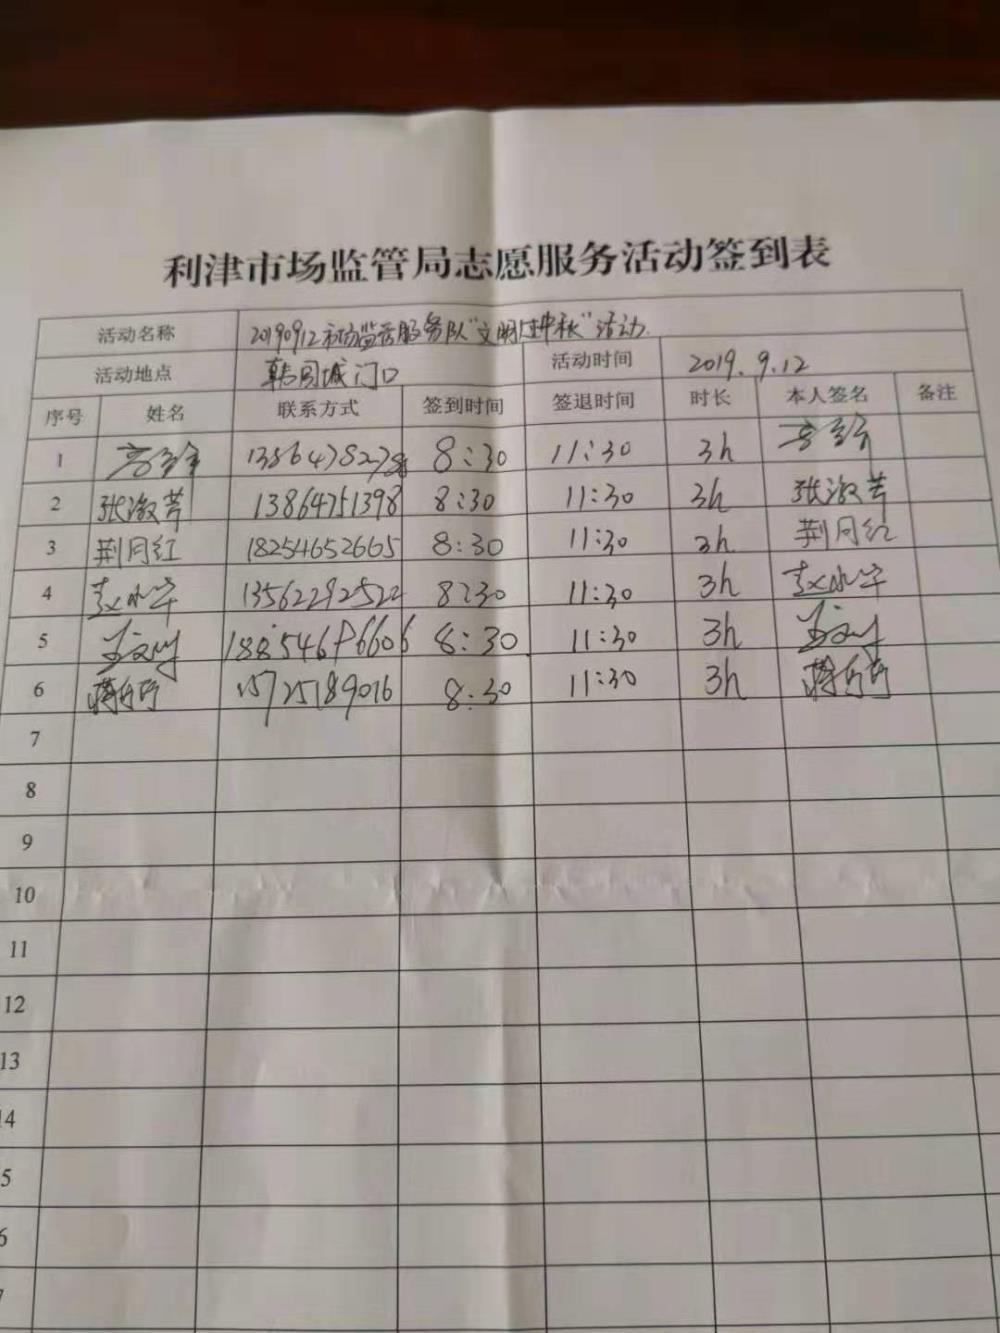 利津市场监管局志愿服务活动签到表
活动名称 20190912市场监管服务队“文明过中秋”活动.
活动地点 韩国城门口 活动时间 2019.9.12
序号 姓名 联系方式 签到时间 签退时间 时长 本人签名 备注
1 8:30 11:30 3h
2 张淑芳 13864751398 8:30 11:30 3h 张淑芳
3 荆月红 18254652665 8:30 11:30 3h 荆月红
4 赵 13562292522 8:30 11:30 3h 赵
5 8:30 11:30 3h
6 15725189016 8:30 11:30 3h
7
8
9
10
11
12
13
14
5
6
7